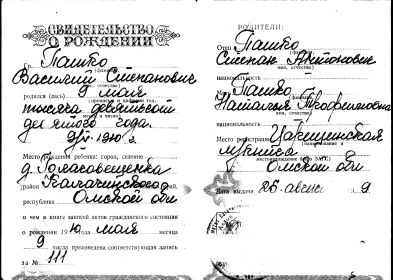 СВИДЕТЕЛЬСТВО
О РОЖДЕНИИ
Гр. Пашко
Василий Степанович
родился (лась) 9 мая
тысяча девятьсот
года.
Место рождения ребенка: город, селение
район Калачинского край,
республика Омской обл
о чем в книге записей актов гражданского состояния
о рождении 19 года мая месяца
9 числа произведена соответствующая запись
за № 111
РОДИТЕЛИ:
Отец Пашко
Степан Антонович
имя, отчество
национальность
Мать Пашко
Наталья Трофимовна
имя, отчество
национальность
Место регистрации
Омской обл
Дата выдачи 26 август 9